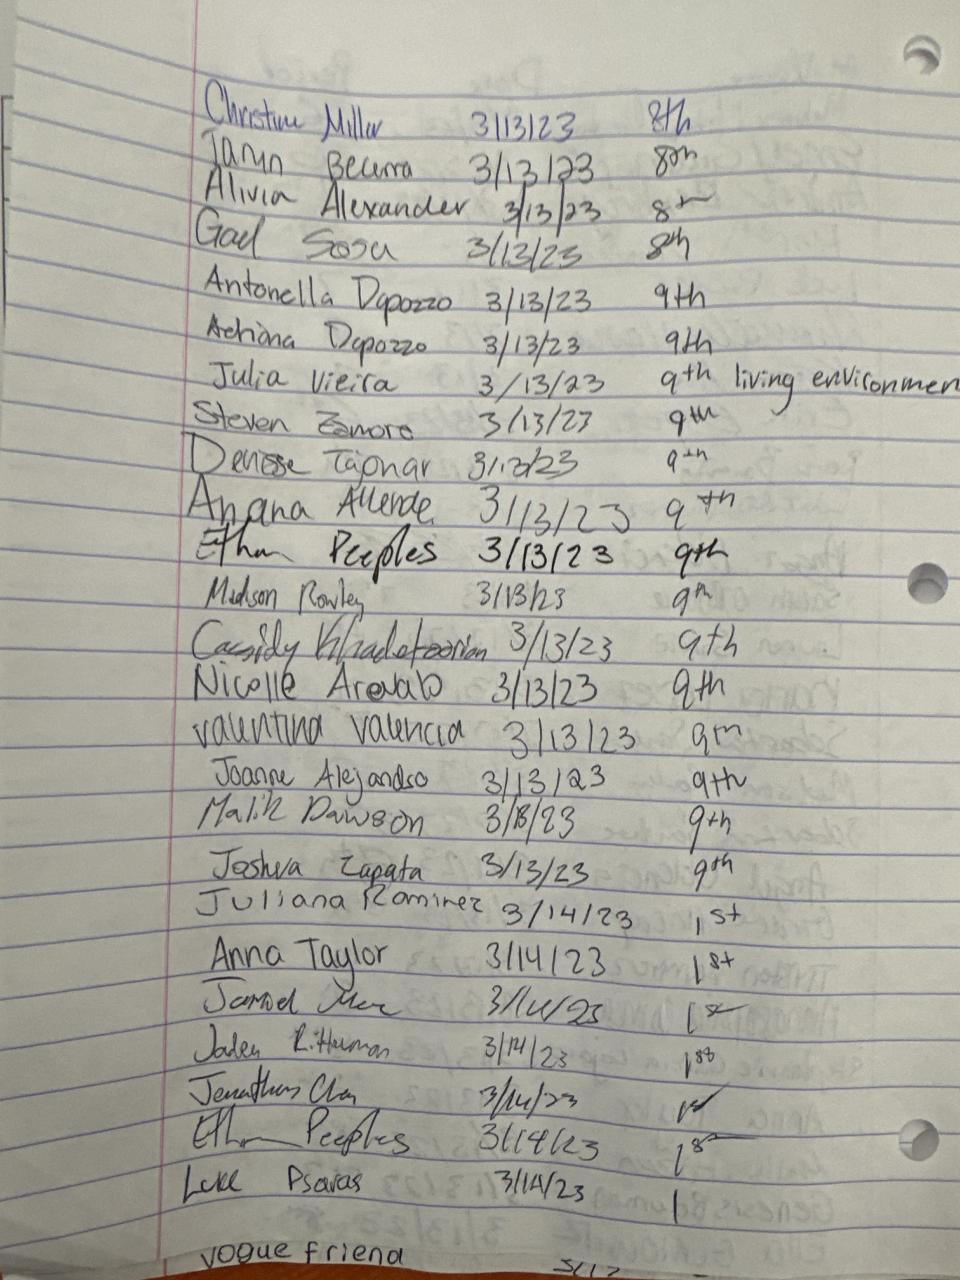 Christine Miller 3/13/23 8th
Becerra 3/13/23 8th
Alivia Alexander 3/13/23 8th
Gael Sosa 3/13/23 8th
Antonella Dapozzo 3/13/23 9th
Adriana Dapozzo 3/13/23 9th
Julia Vieira 3/13/23 9th living environmen
Steven Zamora 3/13/23 9th
Denisse Tajonar 3/13/23 9th
Allende 3/13/23 9th
Ethan Peeples 3/13/23 9th
Madison Rowley 3/13/23 9th
Cassidy 3/13/23 9th
Nicolle Arevalo 3/13/23 9th
Valentina Valencia 3/13/23 9th
Joanne Alejandro 3/13/23 9th
Malik Dawson 3/13/23 9th
Joshua Zapata 3/13/23 9th
Juliana Ramirez 3/14/23 1st
Anna Taylor 3/14/23 1st
3/14/23 1st
Jaden 3/14/23 1st
Jonathan 3/14/23 1st
Ethan Peeples 3/14/23 1st
Luke Psaras 3/14/23 1
vogue friend